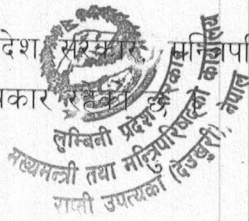 देश सरकार, मन्त्रिपरि
कार रहेको छ ।
लुम्बिनी प्रदेश सरकार
मुख्यमन्त्री तथा मन्त्रिपरिषद्को कार्यालय
राप्ती उपत्यका (देउखुरी), नेपाल